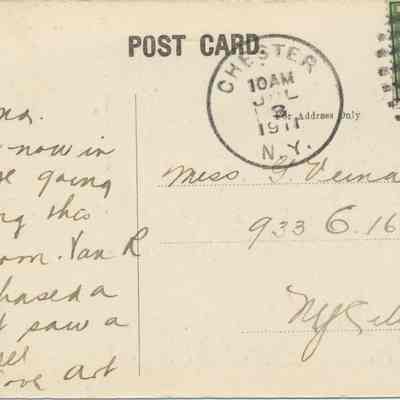 POST CARD.
CHESTER
10AM
JUL
3
1911
N.Y.
For Address Only
now in
going
this
Van R
hased a
saw a
Love Art
Miss. G. Verna
933 E. 16
NY